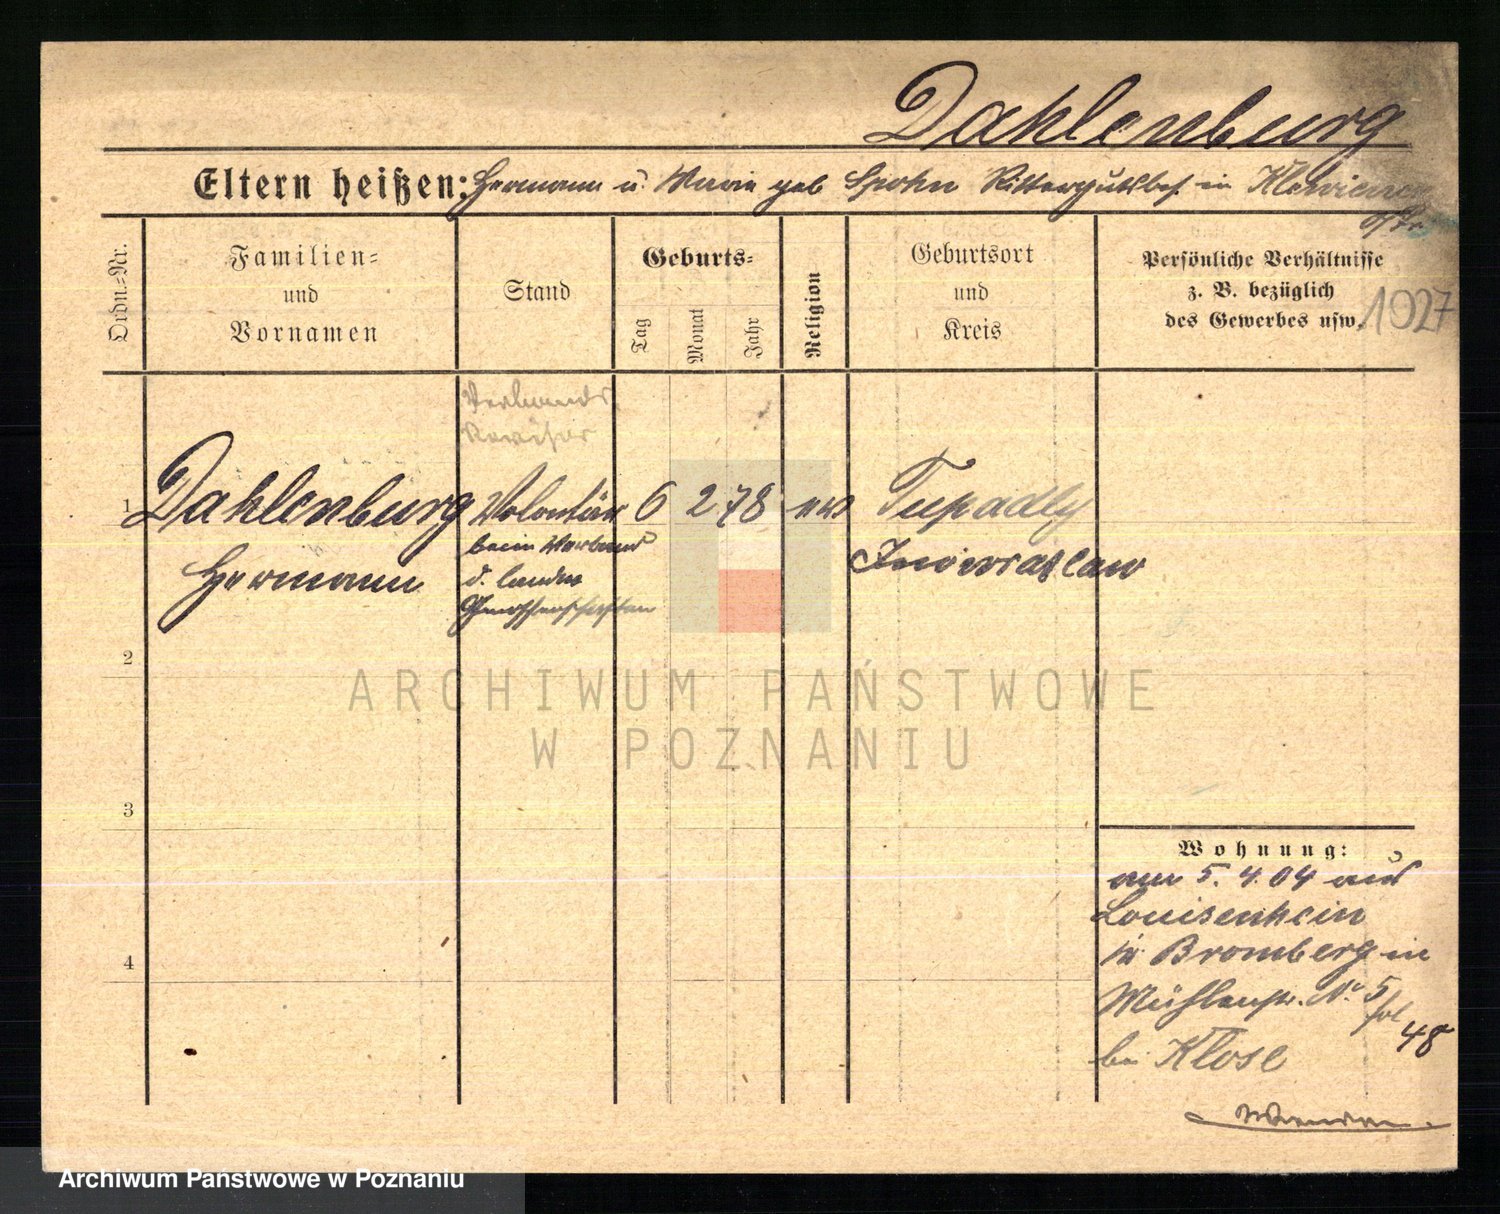 Dahlenburg
Eltern heißen: Hermann u. Marie geb Spohn Rittergutsbes. in
o/Pr.
Ordn.=Nr.
Familien=
und
Vornamen
Stand
Geburts=
Tag
Monat
Jahr
Religion
Geburtsort
und
Kreis
Persönliche Verhältnisse
z. B. bezüglich
des Gewerbes usw.
1927
Verbands
Revisor
1 Dahlenburg Volontär 6 2 78 ev Tupadly
beim Verband
Hermann d. landw Inowrazlaw
Genossenschaften
2
ARCHIWUM PAŃSTWOWE
W POZNANIU
3
Wohnung:
am 5. 4. 04 aus
Louisenhein
in Bromberg in
Mühlenstr. No 5
48
bei Klose
4
Archiwum Państwowe w Poznaniu